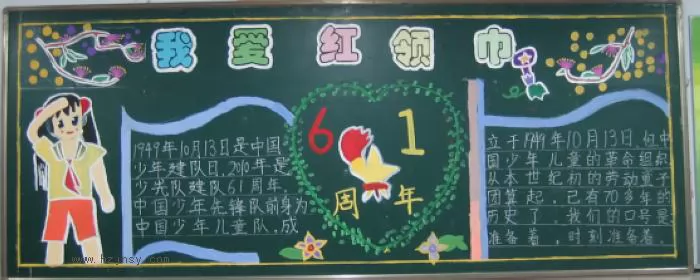 我爱红领巾
1949年10月13日是中国
少年建队日,2010年是
少先队建队61周年,
中国少年先锋队前身为
中国少年儿童队,成
6 1
周年
立于1949年10月13日,但中
国少年儿童的革命组织
从本世纪初的劳动童子
团算起,已有70多年的
历史了,我们的口号是
准备着,时刻准备着。
www.hzjnsy.com